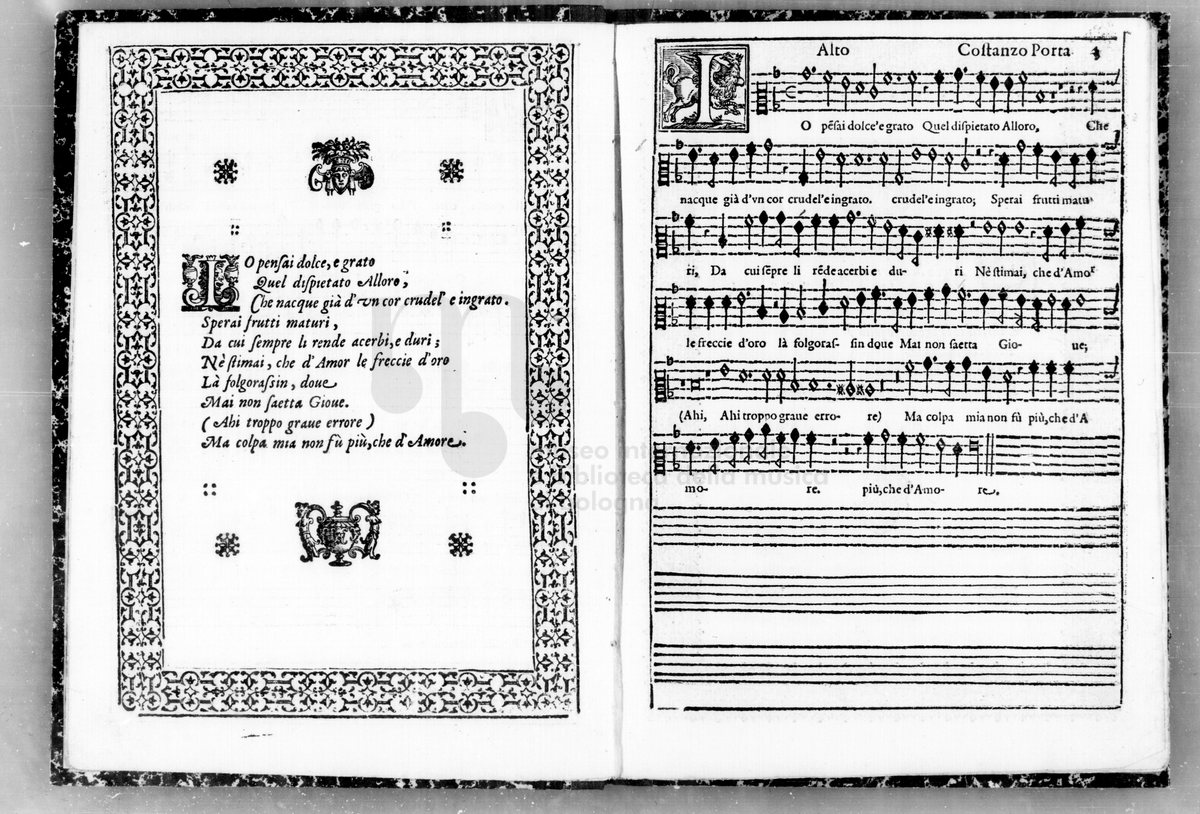 IO pensai dolce, e grato
Quel dispietato Alloro,
Che nacque già d'vn cor crudel' e ingrato.
Sperai frutti maturi,
Da cui sempre li rende acerbi, e duri;
Nè stimai, che d'Amor le freccie d'oro
Là folgorassin, doue
Mai non saetta Gioue.
(Ahi troppo graue errore)
Ma colpa mia non fù più, che d'Amore.
Alto Costanzo Porta 3
IO pẽsai dolce'e grato Quel dispietato Alloro, Che
nacque già d'vn cor crudel'e ingrato. crudel'e ingrato; Sperai frutti matu
ri, Da cui sẽpre li rẽde acerbi e du- ri Nè stimai, che d'Amor
le freccie d'oro là folgoras- sin doue Mai non saetta Gio- ue;
(Ahi, Ahi troppo graue erro- re) Ma colpa mia non fù più, che d'A
mo- re. più, che d'Amo- re.
museo internazionale
biblioteca della musica
bologna